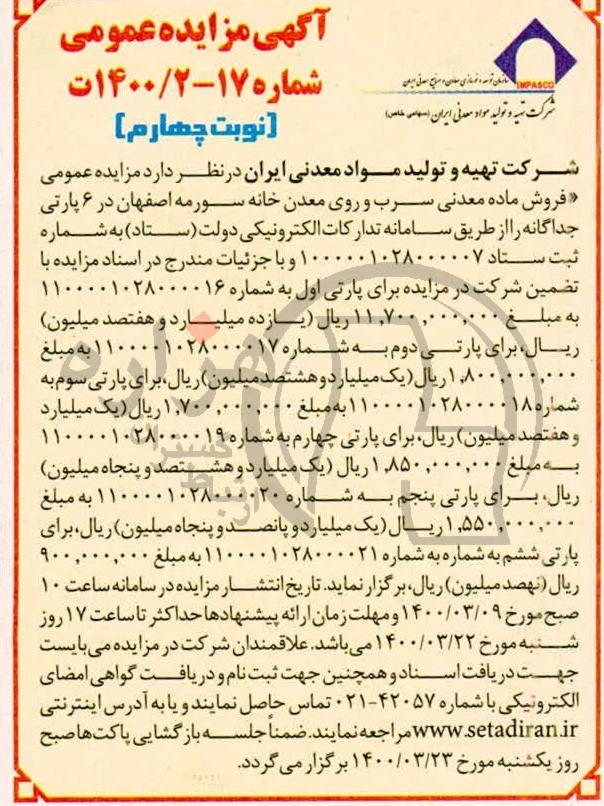 آگهی مزایده عمومی
شماره ۱۷-۱۴۰۰/۲ت
(نوبت چهارم)
IMPASCO
سازمان توسعه و نوسازی معادن و صنایع معدنی ایران
شرکت تهیه و تولید مواد معدنی ایران (سهامی خاص)
شرکت تهیه و تولید مواد معدنی ایران در نظر دارد مزایده عمومی
«فروش ماده معدنی سرب و روی معدن خانه سورمه اصفهان در ۶ پارتی
جداگانه را از طریق سامانه تدارکات الکترونیکی دولت (ستاد) به شماره
ثبت ستاد ۱۰۰۰۰۰۱۰۲۸۰۰۰۰۰۷ و با جزئیات مندرج در اسناد مزایده با
تضمین شرکت در مزایده برای پارتی اول به شماره ۱۱۰۰۰۰۱۰۲۸۰۰۰۰۱۶
به مبلغ ۱۱,۷۰۰,۰۰۰,۰۰۰ ریال (یازده میلیارد و هفتصد میلیون)
ریال، برای پارتی دوم به شماره ۱۱۰۰۰۰۱۰۲۸۰۰۰۰۱۷ به مبلغ
۱,۸۰۰,۰۰۰,۰۰۰ ریال (یک میلیارد و هشتصد میلیون) ریال، برای پارتی سوم به
شماره ۱۱۰۰۰۰۱۰۲۸۰۰۰۰۱۸ به مبلغ ۱,۷۰۰,۰۰۰,۰۰۰ ریال (یک میلیارد
و هفتصد میلیون) ریال، برای پارتی چهارم به شماره ۱۱۰۰۰۰۱۰۲۸۰۰۰۰۱۹
به مبلغ ۱,۸۵۰,۰۰۰,۰۰۰ ریال (یک میلیارد و هشتصد و پنجاه میلیون)
ریال، برای پارتی پنجم به شماره ۱۱۰۰۰۰۱۰۲۸۰۰۰۰۲۰ به مبلغ
۱,۵۵۰,۰۰۰,۰۰۰ ریال (یک میلیارد و پانصد و پنجاه میلیون) ریال، برای
پارتی ششم به شماره به شماره ۱۱۰۰۰۰۱۰۲۸۰۰۰۰۲۱ به مبلغ ۹۰۰,۰۰۰,۰۰۰
ریال (نهصد میلیون) ریال، برگزار نماید. تاریخ انتشار مزایده در سامانه ساعت ۱۰
صبح مورخ ۱۴۰۰/۰۳/۰۹ و مهلت زمان ارائه پیشنهادها حداکثر تا ساعت ۱۷ روز
شنبه مورخ ۱۴۰۰/۰۳/۲۲ می‌باشد. علاقمندان شرکت در مزایده می‌بایست
جهت دریافت اسناد و همچنین جهت ثبت نام و دریافت گواهی امضای
الکترونیکی با شماره ۴۲۰۵۷-۰۲۱ تماس حاصل نمایند و یا به آدرس اینترنتی
www.setadiran.ir مراجعه نمایند. ضمناً جلسه بازگشایی پاکت‌ها صبح
روز یکشنبه مورخ ۱۴۰۰/۰۳/۲۳ برگزار می‌گردد.